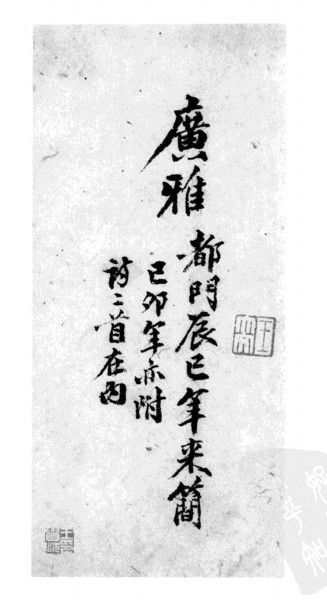 廣雅
都門辰巳年来簡
己卯年亦附
詩二首在内